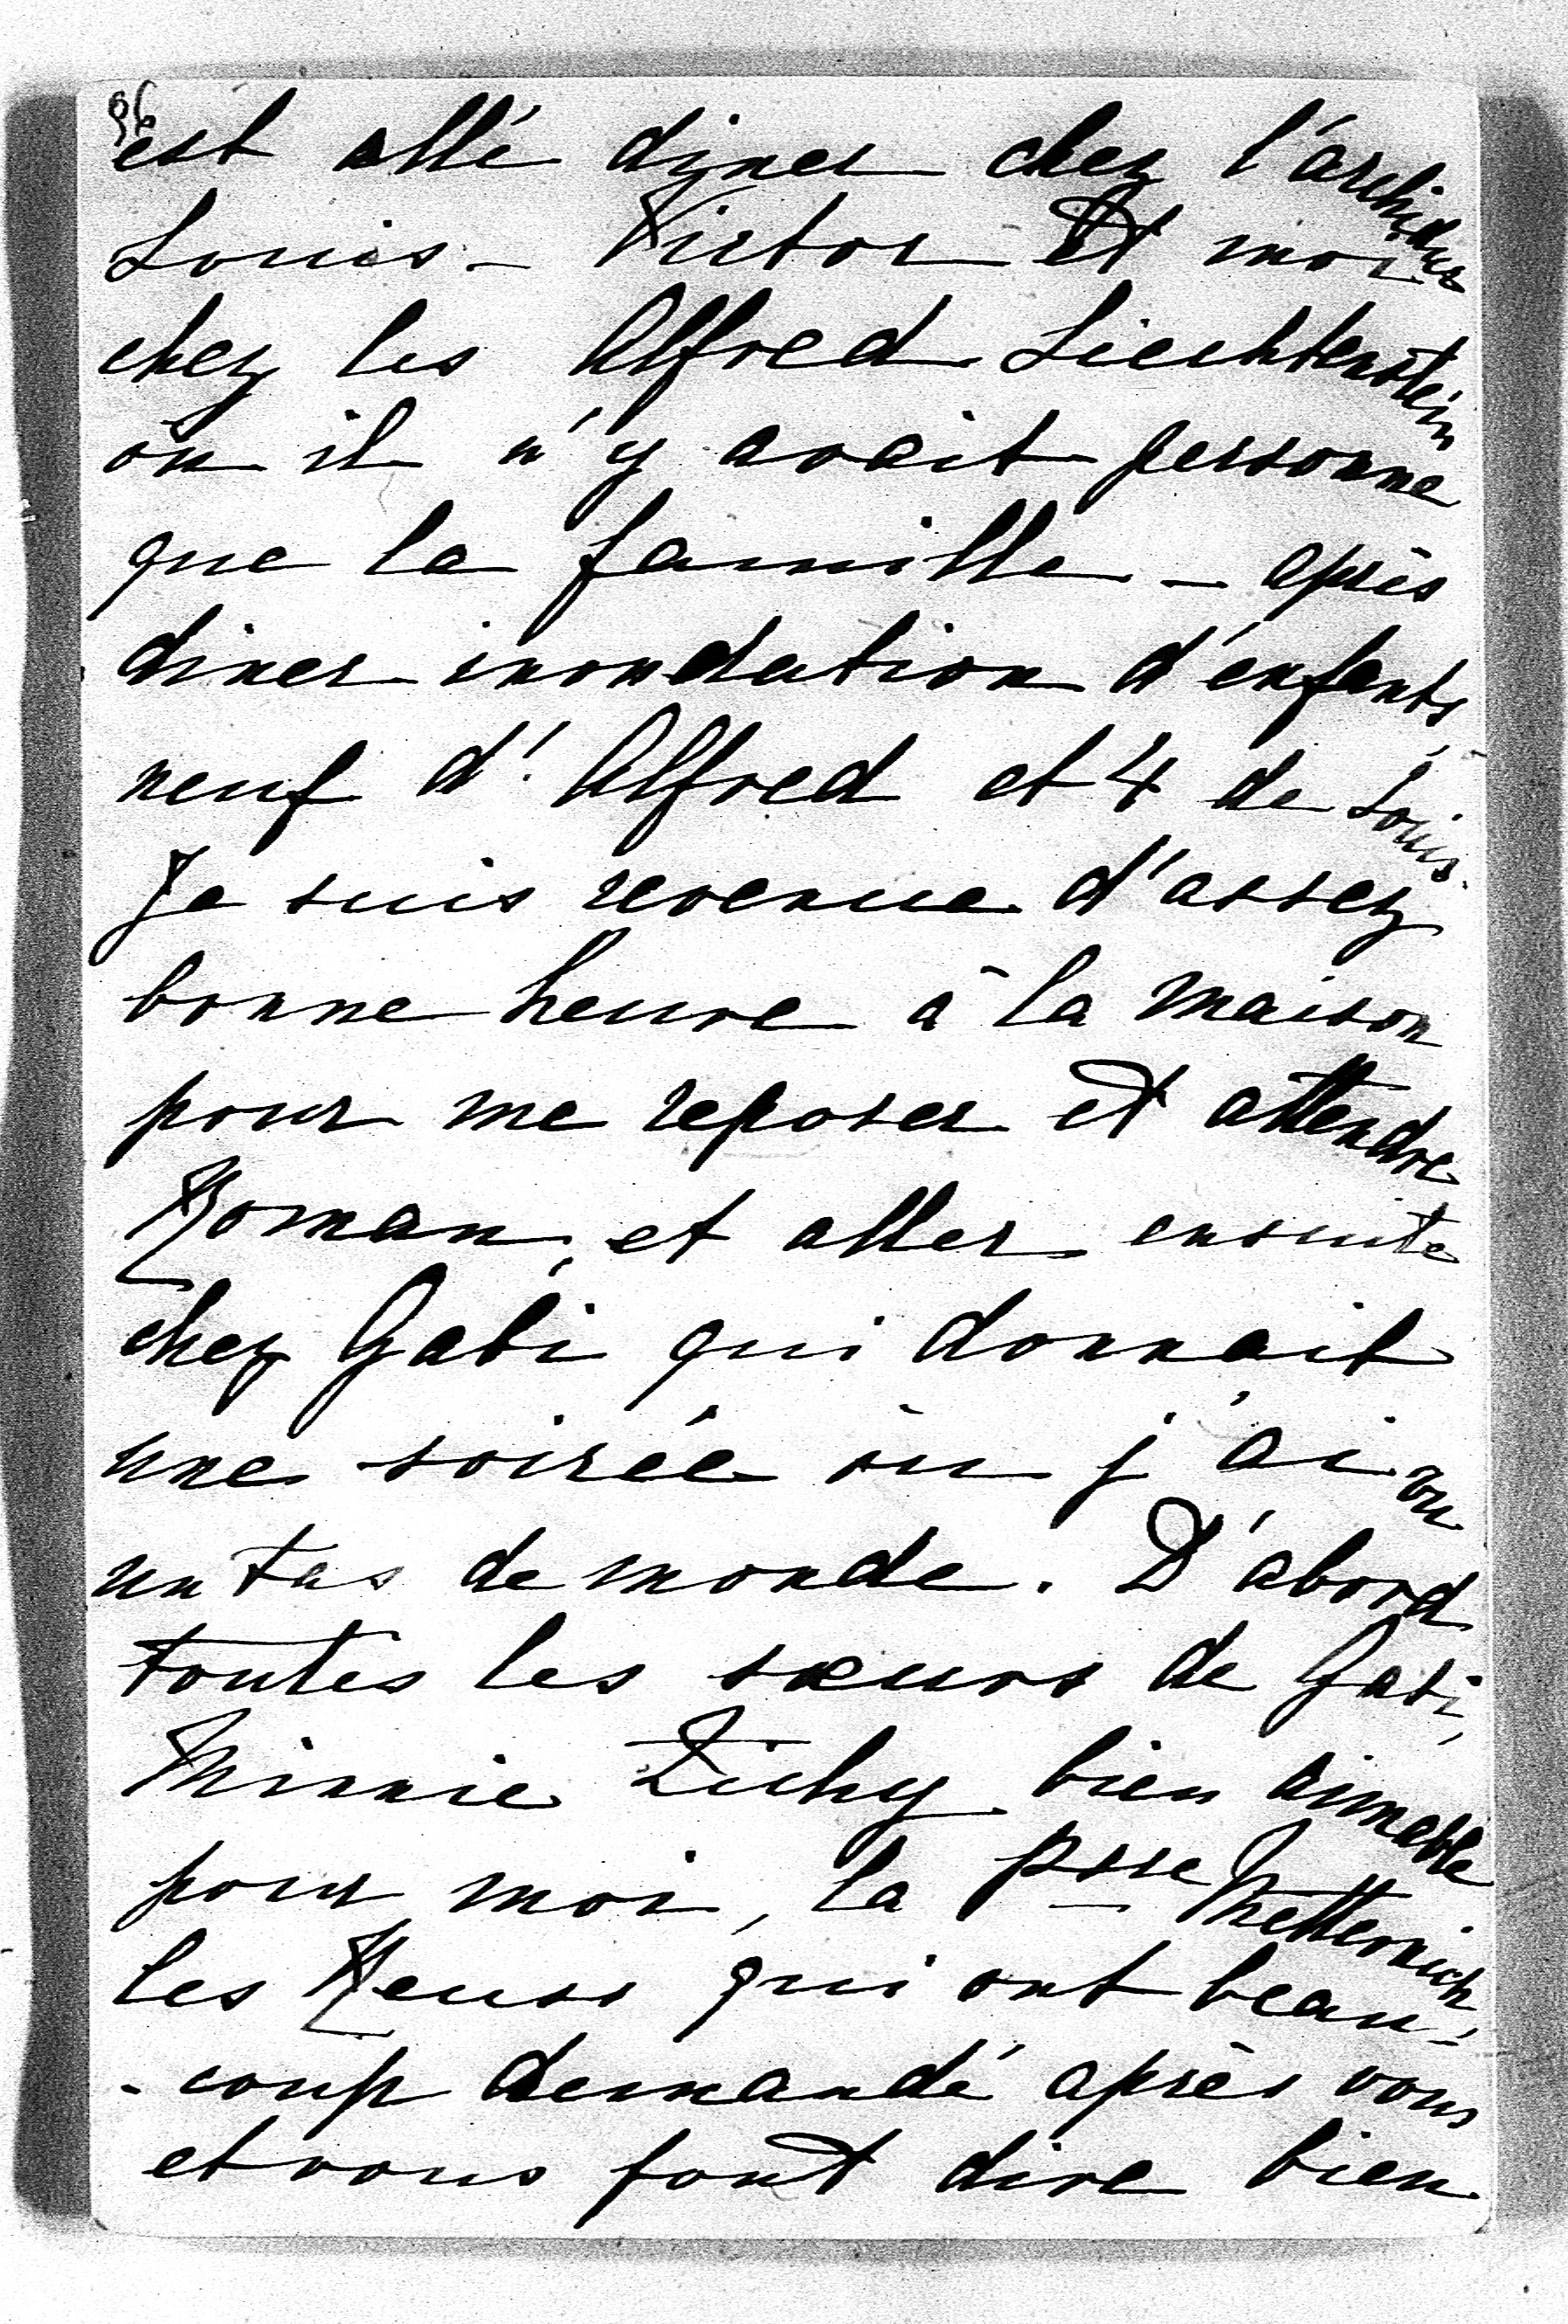 96
est allé diner chez l'archiduc
Louis-Victor et moi
chez les Alfred Liechtenstein
où il n'y avait personne
que la famille – après
diner inondation d'enfants,
neuf d'Alfred et 4 de Louis.
Je suis revenue d'assez
bonne heure à la maison
pour me reposer et attendre
Roman, et aller ensuite
chez Gabi qui donnait
une soirée où j'ai vu
un tas de monde. D'abord
toutes les sœurs de Gabi,
Minnie Zichy bien aimable
pour moi, la Psse Metternich,
les Reuss qui ont beau-
-coup demandé après vous
et vous font dire bien